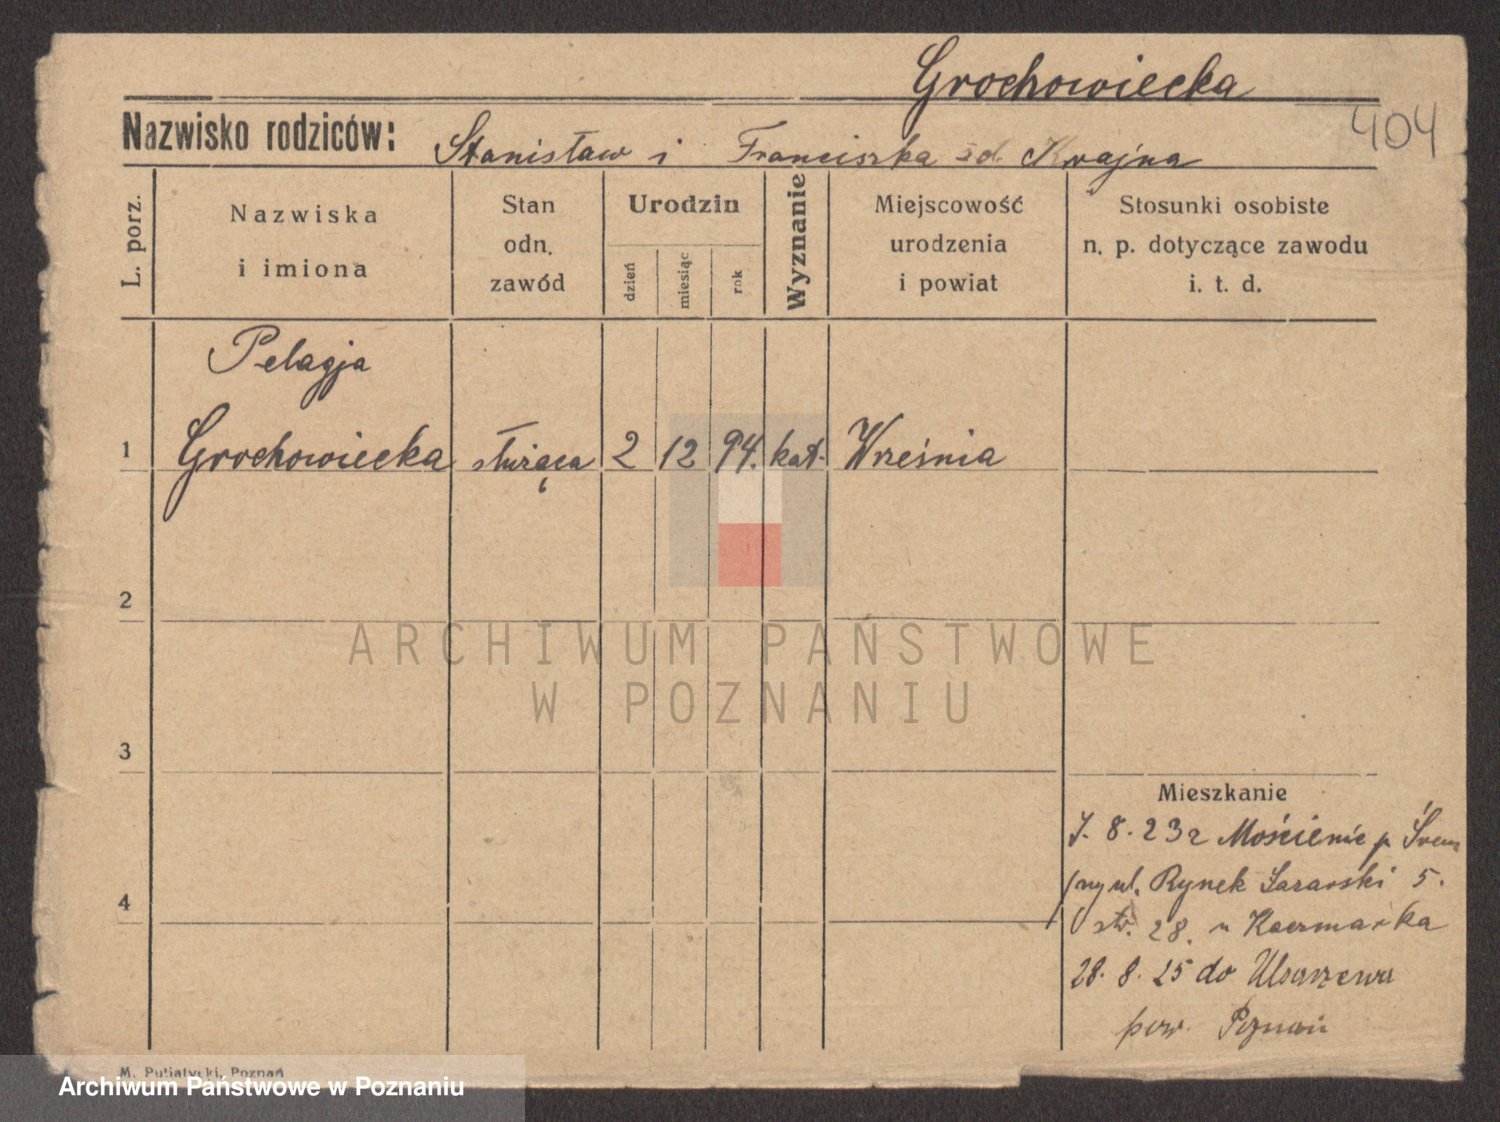 Grochowiecka
404
Nazwisko rodziców: Stanisław i Franciszka zd. Krajna
L. porz.
Nazwiska i imiona
Stan odn. zawód
Urodzin
dzień
miesiąc
rok
Wyznanie
Miejscowość urodzenia i powiat
Stosunki osobiste n. p. dotyczące zawodu i. t. d.
Pelagja
1 Grochowiecka służąca 2 12 94. kat. Września
2
ARCHIWUM PAŃSTWOWE
W POZNANIU
3
Mieszkanie
7. 8. 23 z Mościenic p. Śrem
4
przyul. Rynek Sazarski 5.
st. 28. u Kaczmarka
28. 8. 25 do Uzarzewa
pow. Poznań
M. Putiatycki, Poznań
Archiwum Państwowe w Poznaniu